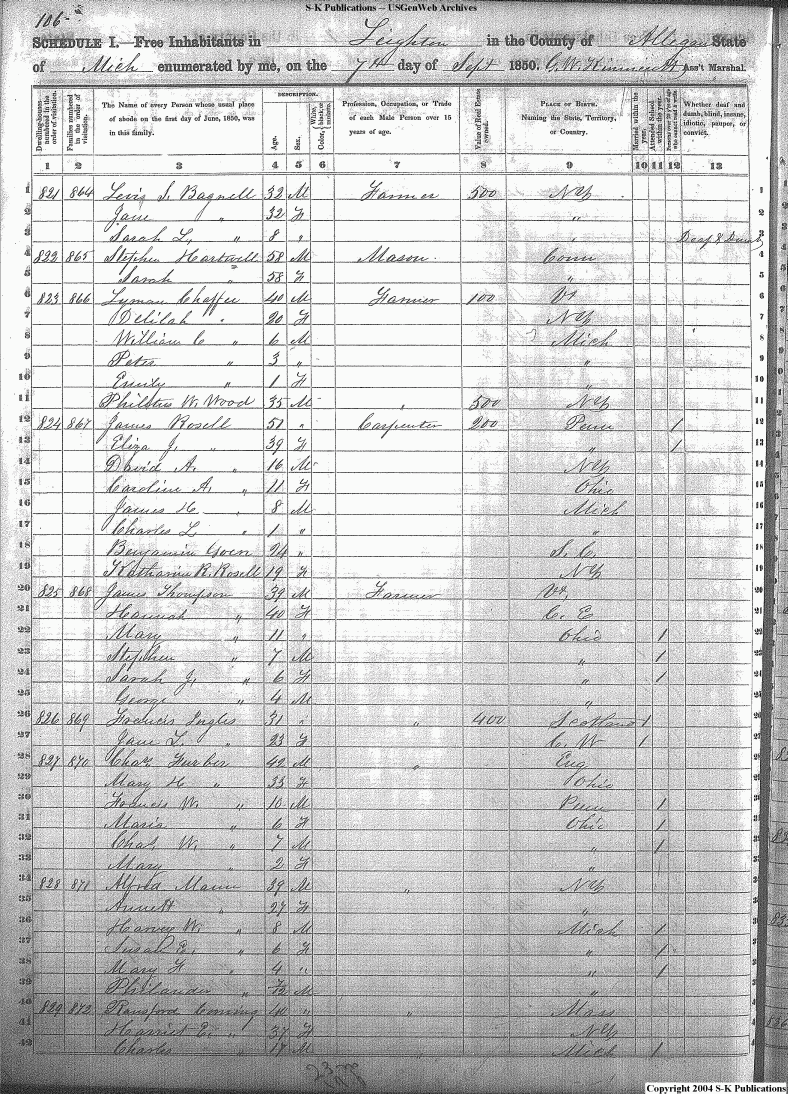 S-K Publications – USGenWeb Archives
106
SCHEDULE I. Free Inhabitants in Leighton in the County of Allegan State
of Mich enumerated by me, on the 7th day of Sept 1850. Ass't Marshal.
Dwelling-houses numbered in the order of visitation.
Families numbered in the order of visitation.
The Name of every Person whose usual place of abode on the first day of June, 1850, was in this family.
DESCRIPTION.
Age.
Sex.
Color, White, black, or mulatto.
Profession, Occupation, or Trade of each Male Person over 15 years of age.
Value of Real Estate owned.
PLACE OF BIRTH. Naming the State, Territory, or Country.
Married within the year.
Attended School within the year.
Persons over 20 years of age who cannot read & write.
Whether deaf and dumb, blind, insane, idiotic, pauper, or convict.
1 2 3 4 5 6 7 8 9 10 11 12 13
1 821 864 Levis S. Bagnell 32 M Farmer 500 NY 1
2 Jane " 32 F " 2
3 Sarah L. " 8 " " Deaf & Dumb 3
4 822 865 Stephen Hartwell 58 M Mason Conn 4
5 Sarah " 58 F " 5
6 823 866 Lyman Chaffee 40 M Farmer 100 Vt 6
7 Delilah " 20 F NY 7
8 William C " 6 M Mich 8
9 Peter " 3 " " 9
10 Emily " 1 F " 10
11 W. Wood 35 M " 500 NY 11
12 824 867 James Rosell 51 " Carpenter 200 Penn / 12
13 Eliza J. " 39 F " / 13
14 David A. " 16 M NY 14
15 Caroline A. " 11 F Ohio 15
16 James H " 8 M Mich 16
17 Charles L " 1 " " 17
18 Benjamin Goen 24 " S. C. 18
19 Katharine R. Rosell 19 F NY 19
20 825 868 James Thompson 39 M Farmer Vt. 20
21 Hannah " 40 F C. E 21
22 Mary " 11 " Ohio / 22
23 Stephen " 7 M " / 23
24 Sarah J. " 6 F " / 24
25 George " 4 M " 25
26 826 869 Francis Ingles 31 " " 400 Scotland / 26
27 Jane L. " 23 F C. W / 27
28 827 870 Chas. Furber 42 M " Eng 28
29 Mary H " 33 F Ohio 29
30 Francis W. " 10 M Penn / 30
31 Maria " 6 F Ohio / 31
32 Chas. W. " 7 M " / 32
33 Mary " 2 F " 33
34 828 871 Alfred Mann 39 M " NY 34
35 Annett " 27 F " 35
36 Harvey W. " 8 M Mich / 36
37 Susan E. " 6 F " / 37
38 Mary F " 4 " " / 38
39 Philander " M " 39
40 829 872 Ransford Corning 40 " " Mass 40
41 Harriet E. " 37 F NY 41
42 Charles " 17 M " Mich / 42
Copyright 2004 S-K Publications